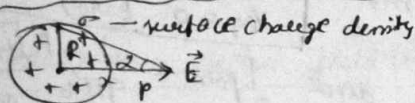 σ — surface charge density
R
α
E
P